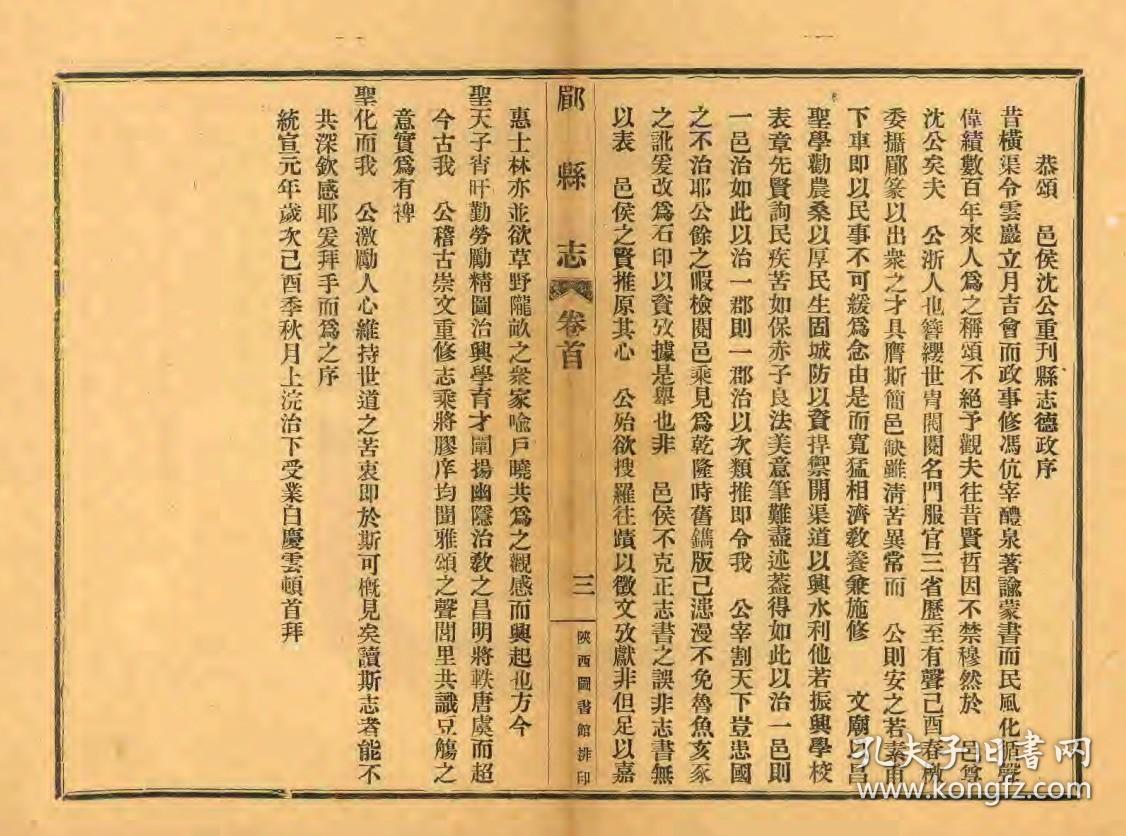 恭頌　邑侯沈公重刊縣志德政序
昔橫渠令雲巖立月吉會而政事修馮伉宰醴泉著諭蒙書而民風化循聲
偉績數百年來人爲之稱頌不絕予觀夫往昔賢哲因不禁穆然於　邑尊
沈公矣夫　公浙人也簪纓世胄閥閱名門服官三省歷至有聲己酉春檄
委攝郿篆以出衆之才具膺斯簡邑缺雖淸苦異常而　公則安之若素甫
下車即以民事不可緩爲念由是而寬猛相濟敎養兼施修　文廟以昌
聖學勸農桑以厚民生固城防以資捍禦開渠道以興水利他若振興學校
表章先賢詢民疾苦如保赤子良法美意筆難盡述蓋得如此以治一邑則
一邑治如此以治一郡則一郡治以次類推即令我　公宰割天下豈患國
之不治耶公餘之暇檢閱邑乘見爲乾隆時舊鐫版已漶漫不免魯魚亥豕
之訛爰改爲石印以資攷據是舉也非　邑侯不克正志書之誤非志書無
以表　邑侯之賢推原其心　公殆欲搜羅往蹟以徵文攷獻非但足以嘉
郿縣志　卷首　三　陝西圖書館排印
惠士林亦並欲草野隴畝之衆家喻戶曉共爲之觀感而興起也方今
聖天子宵旰勤勞勵精圖治興學育才闡揚幽隱治敎之昌明將軼唐虞而超
今古我　公稽古崇文重修志乘將膠庠均聞雅頌之聲閭里共識豆觴之
意實爲有裨
聖化而我　公激勵人心維持世道之苦衷即於斯可槪見矣讀斯志者能不
共深欽感耶爰拜手而爲之序
統宣元年歲次己酉季秋月上浣治下受業白慶雲頓首拜
孔夫子旧書网
www.kongfz.com